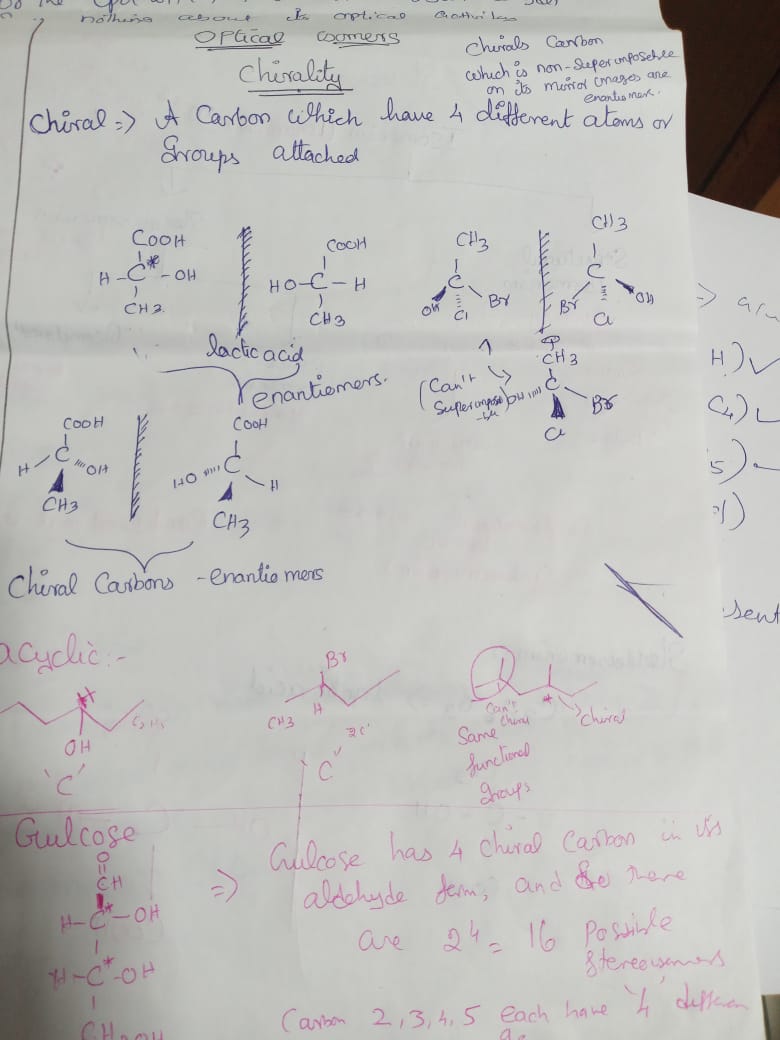 nothing about its optical
Optical isomers
Chirality
Chirals Carbon
which is non-superimposable
on its mirror images are
Chiral => A Carbon which have 4 different atoms or
Groups attached
COOH
H-C*-OH
CH3
COOH
HO-C-H
CH3
CH3
C
OH Cl Br
CH3
C
Br Cl OH
lactic acid
enantiomers.
(Can't
Superimpose
CH3
OH C Br
Cl
COOH
H C OH
CH3
COOH
HO C H
CH3
Chiral Carbons - enantiomers
sent
acyclic:-
H
OH
'C'
Br
CH3 H
C"
Can't
Chiral
Same
functional
groups
* chiral
Gulcose
O
CH
H-C*-OH
H-C*-OH
=>
Gulcose has 4 chiral Carbon in its
aldehyde form, and so there
are 2^4 = 16 Possible
Stereoisomers
Carbon 2,3,4,5 each have '4' differen